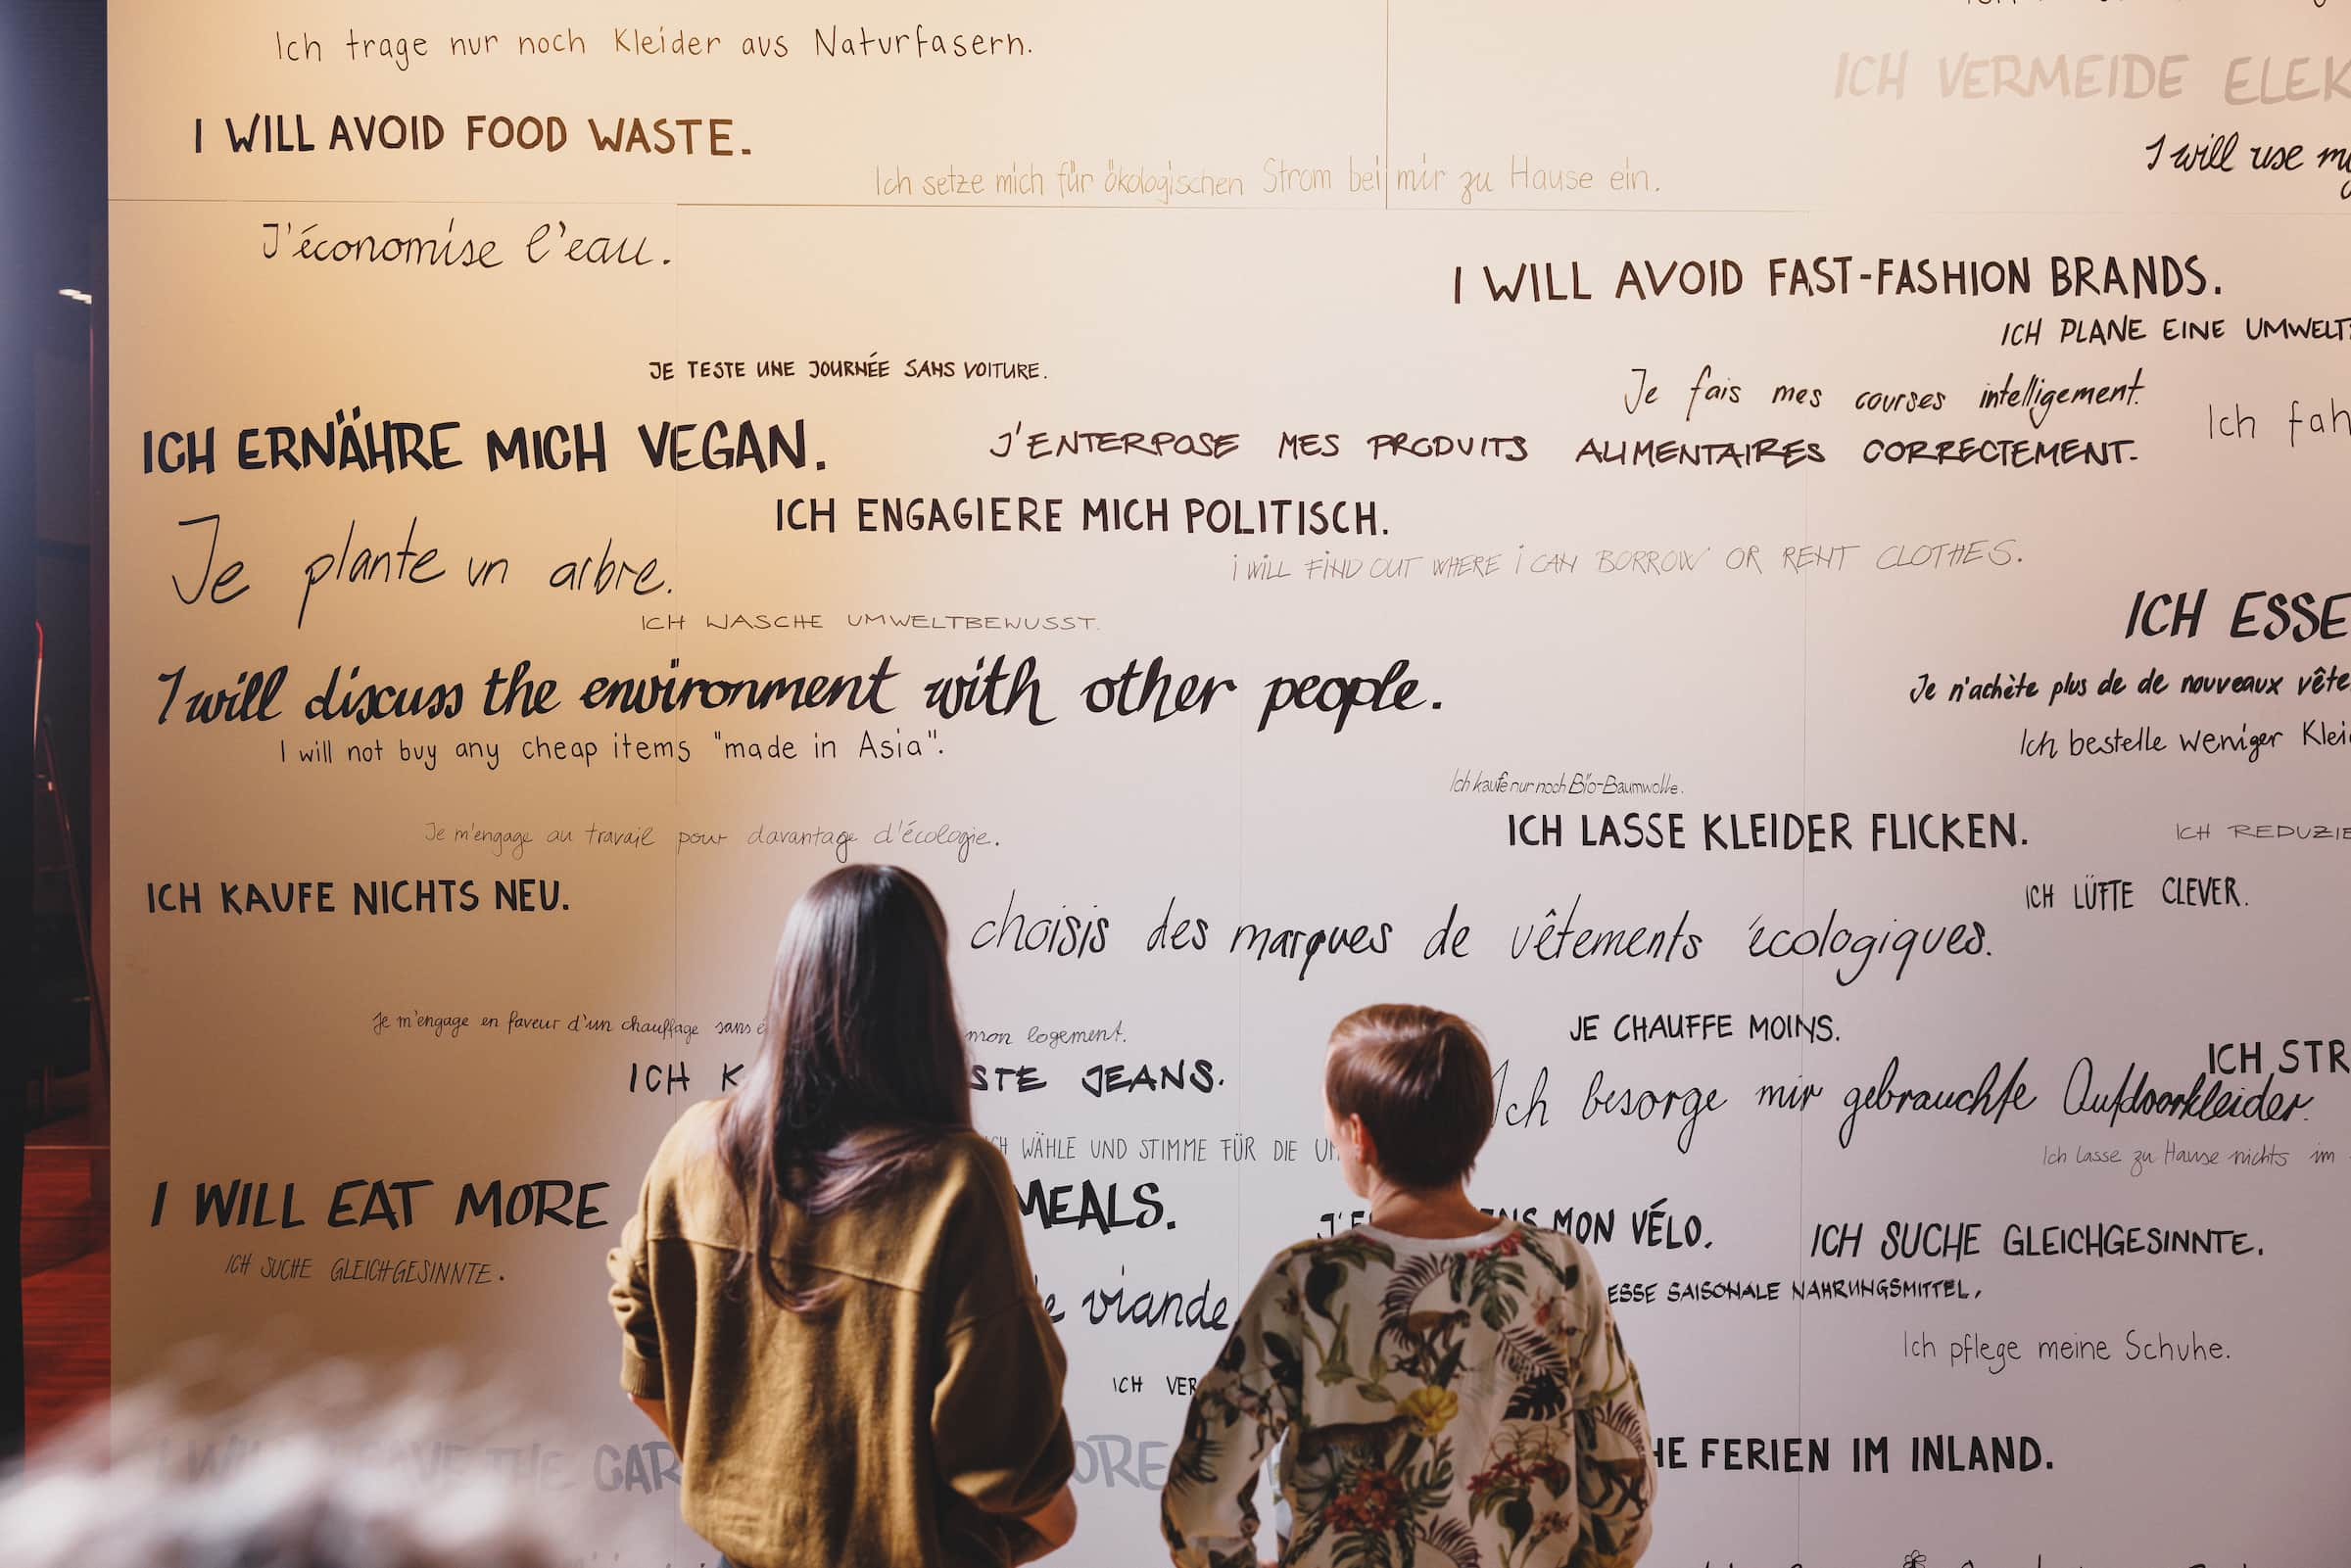 Ich trage nur noch Kleider aus Naturfasern.
ICH VERMEIDE ELEK
I WILL AVOID FOOD WASTE.
I will use
Ich setze mich für ökologischen Strom bei mir zu Hause ein.
J'économise l'eau.
I WILL AVOID FAST-FASHION BRANDS.
ICH PLANE EINE UMWELT
JE TESTE UNE JOURNÉE SANS VOITURE.
Je fais mes courses intelligement.
Ich fah
ICH ERNÄHRE MICH VEGAN.
J'ENTERPOSE MES PRODUITS ALIMENTAIRES CORRECTEMENT.
ICH ENGAGIERE MICH POLITISCH.
Je plante un arbre.
I WILL FIND OUT WHERE I CAN BORROW OR RENT CLOTHES.
ICH WASCHE UMWELTBEWUSST.
ICH ESSE
I will discuss the environment with other people.
Je n'achète plus de de nouveaux vête
I will not buy any cheap items "made in Asia".
Ich bestelle weniger Klei
Ich kaufe nur noch Bio-Baumwolle.
Je m'engage au travail pour davantage d'écologie.
ICH LASSE KLEIDER FLICKEN.
ICH REDUZIE
ICH KAUFE NICHTS NEU.
ICH LÜFTE CLEVER.
choisis des marques de vêtements écologiques.
Je m'engage en faveur d'un chauffage sans é
mon logement.
JE CHAUFFE MOINS.
ICH K
STE JEANS.
ICH STR
Ich besorge mir gebrauchte Outdoorkleider.
ICH WÄHLE UND STIMME FÜR DIE UM
Ich lasse zu Hause nichts im
I WILL EAT MORE
MEALS.
MON VÉLO.
ICH SUCHE GLEICHGESINNTE.
ICH SUCHE GLEICHGESINNTE.
viande
ESSE SAISONALE NAHRUNGSMITTEL.
Ich pflege meine Schuhe.
ICH VER
THE CAR
ORE
HE FERIEN IM INLAND.